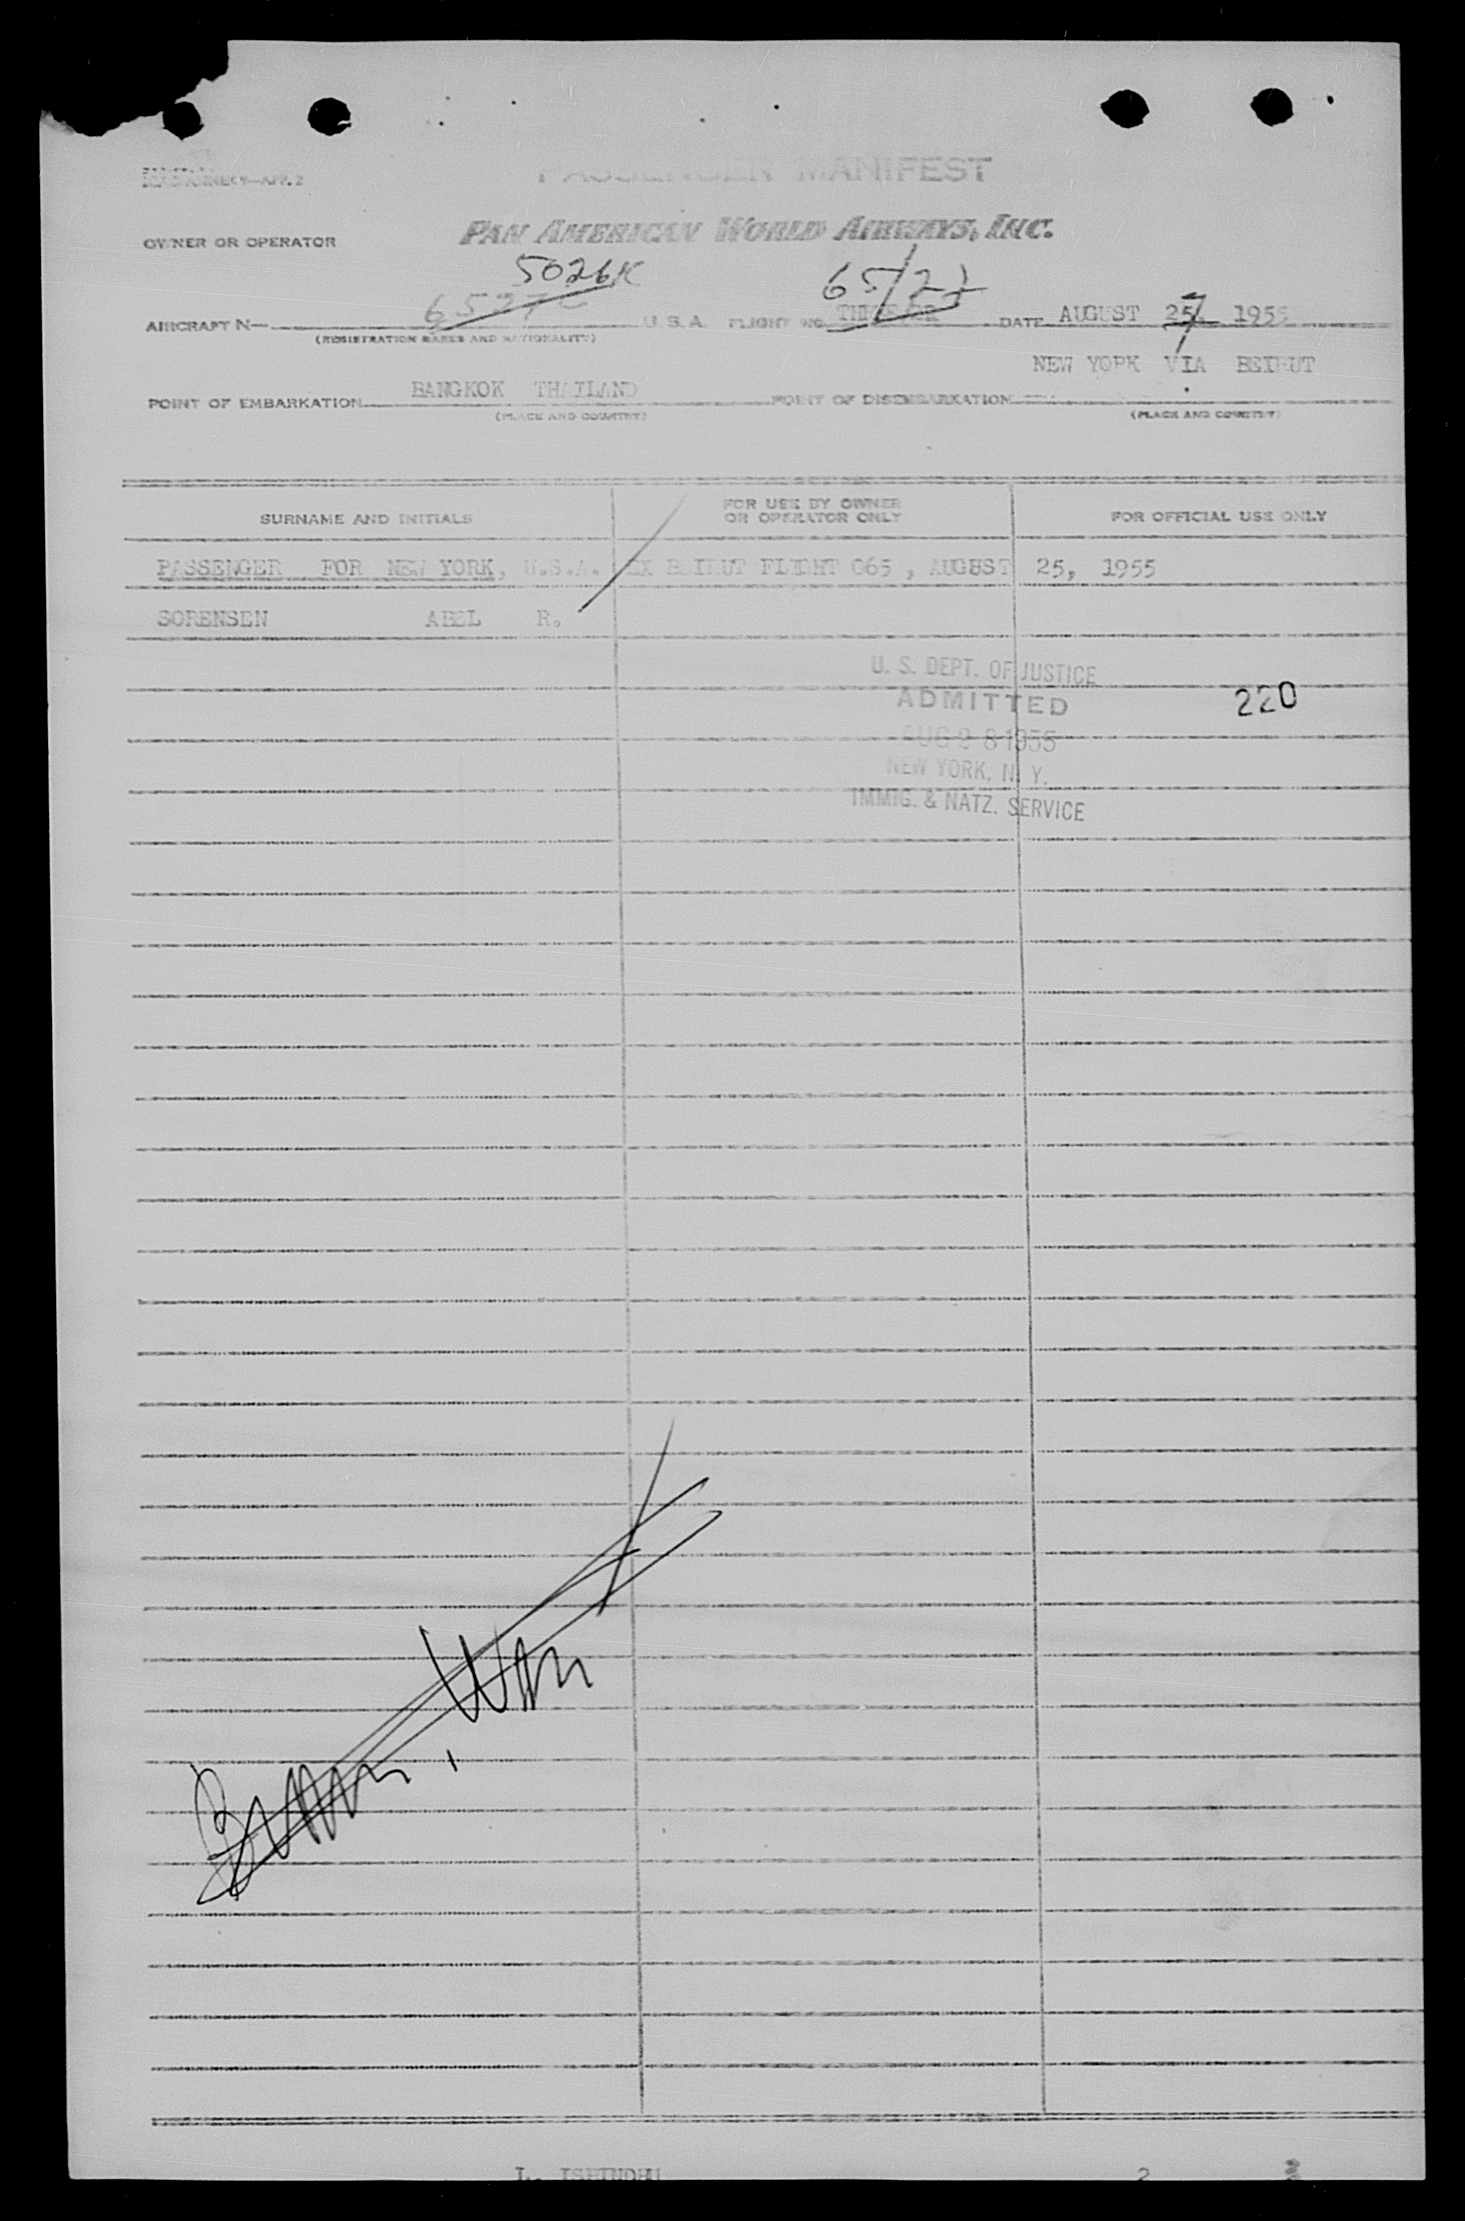 PASSENGER MANIFEST
OWNER OR OPERATOR PAN AMERICAN WORLD AIRWAYS, INC.
5026K 65/27
AIRCRAFT N— 6527C U. S. A. FLIGHT NO. DATE AUGUST 25, 7 1955
(REGISTRATION MARKS AND NATIONALITY)
NEW YORK VIA BEIRUT
POINT OF EMBARKATION BANGKOK THAILAND POINT OF DISEMBARKATION
(PLACE AND COUNTRY) (PLACE AND COUNTRY)
SURNAME AND INITIALS FOR USE BY OWNER OR OPERATOR ONLY FOR OFFICIAL USE ONLY
PASSENGER FOR NEW YORK, U.S.A. EX BEIRUT FLIGHT 065, AUGUST 25, 1955
SORENSEN ABEL R.
U. S. DEPT. OF JUSTICE
ADMITTED 220
AUG 28 1955
NEW YORK, N. Y.
IMMIG. & NATZ. SERVICE
2